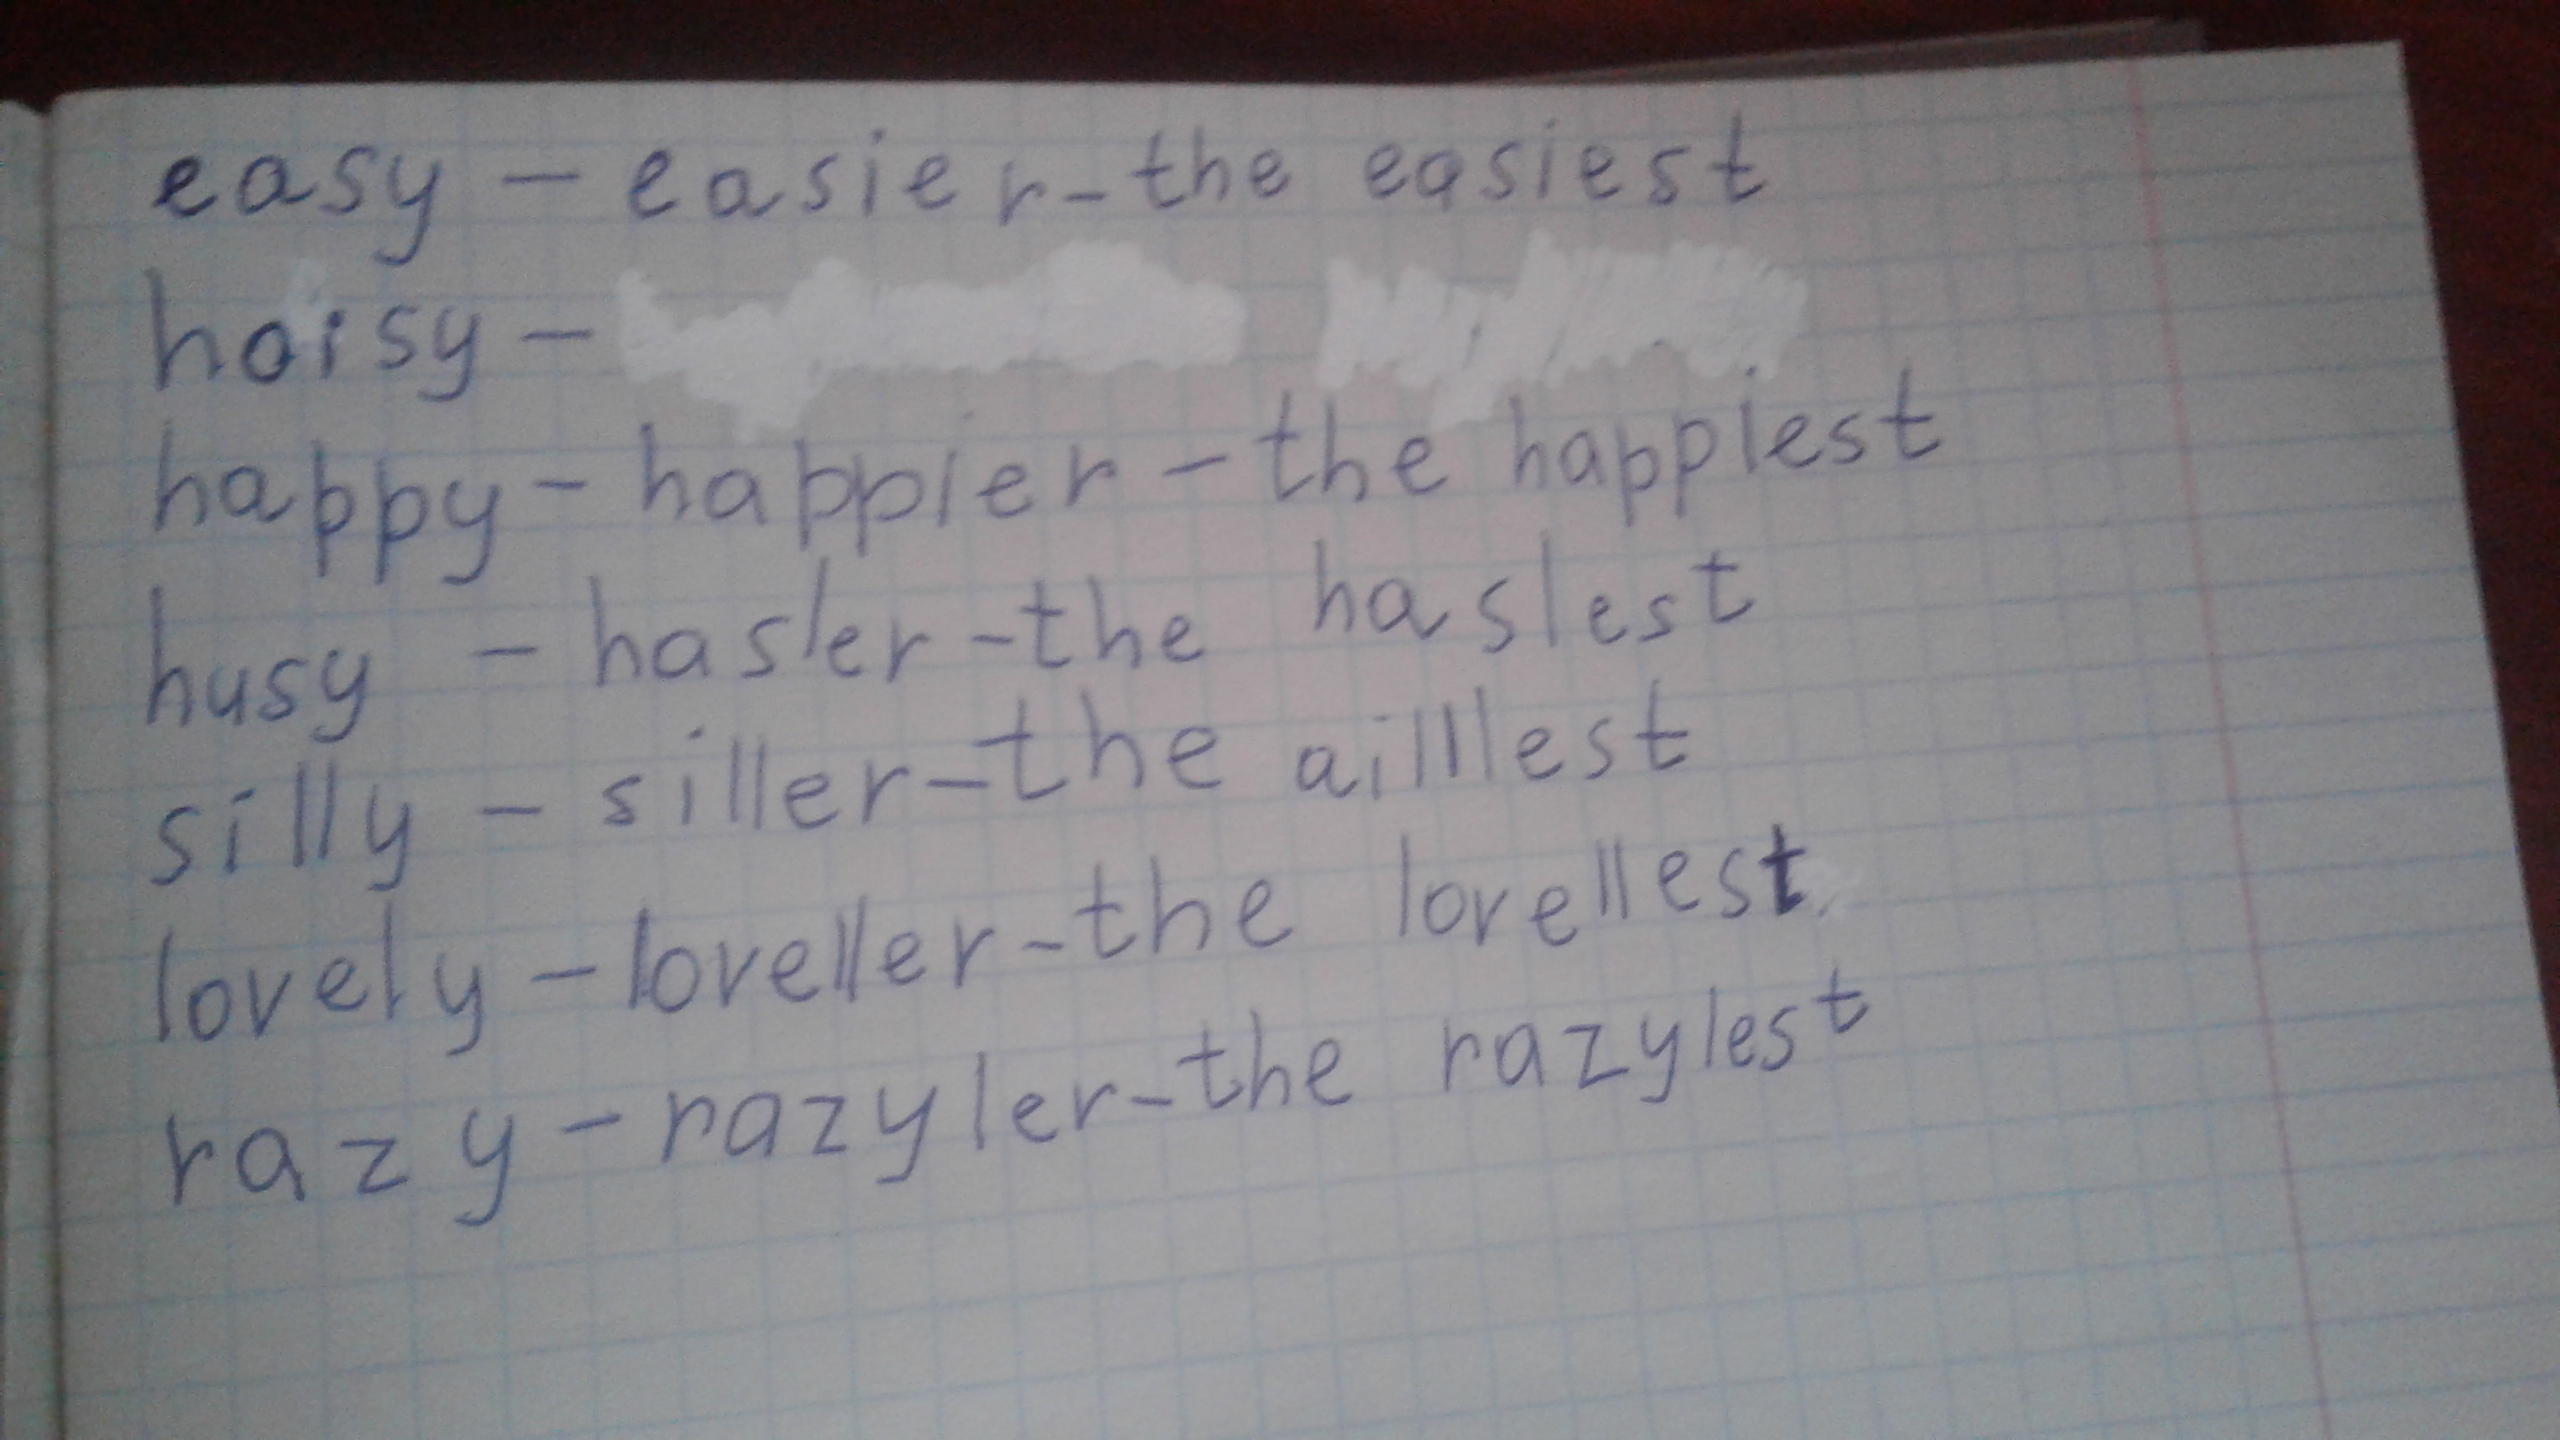 easy - easier - the easiest
hoisy -
happy - happier - the happiest
husy - hasier - the hasiest
silly - siller - the ailllest
lovely - loveller - the lovellest.
razy - razyler - the razylest